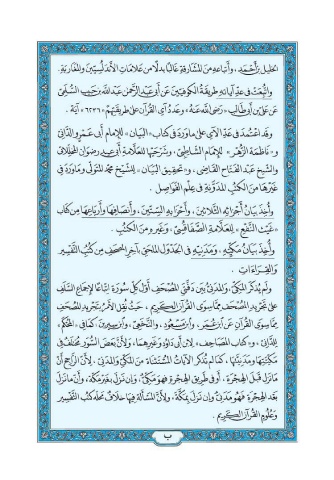 الخليل بن أحمد ، وأتباعه من المشارقة غالبًا بدلًا من علامات الأندلسيين والمغاربة .
واتُّبعت في عدّ آياته طريقة الكوفيين عن أبي عبد الرحمن عبد الله بن حبيب السُّلَمي
عن علي بن أبي طالب « رضي الله عنه » وعدد آي القرآن على طريقتهم « ٦٢٣٦ » آية .
وقد اعتُمد في عدّ الآي على ما ورد في كتاب « البيان » للإمام أبي عمرو الداني
و « ناظمة الزُّهر » للإمام الشاطبي ، وشرحيها للعلامة أبي عيد رضوان المخللاتي
والشيخ عبد الفتاح القاضي ، و « تحقيق البيان » للشيخ محمد المتولي وما ورد في
غيرها من الكتب المدوَّنة في علم الفواصل .
وأُخذ بيان أجزائه الثلاثين ، وأحزابه الستين ، وأنصافها وأرباعها من كتاب
« غيث النفع » للعلامة الصفاقسي ، وغيره من الكتب .
وأُخذ بيان مكّيّه ، ومدنيّه في الجدول الملحق بآخر المصحف من كتب التفسير
والقراءات .
ولم يُذكر المكي ، والمدني بين دفتي المصحف أول كل سورة اتباعًا لإجماع السلف
على تجريد المصحف مما سوى القرآن الكريم ، حيث نُقل الأمر بتجريد المصحف
مما سوى القرآن عن ابن عمر ، وابن مسعود ، والنخعي ، وابن سيرين ، كما في « المحكم »
للداني ، و « كتاب المصاحف » لابن أبي داود وغيرهما ، ولأن بعض السور مختلف في
مكيتها ومدنيتها ، كما لم تُذكر الآيات المستثناة من المكي والمدني ، لأن الراجح أن
ما نزل قبل الهجرة ، أو في طريق الهجرة فهو مكي ، وإن نزل بغير مكة ، وأن ما نزل
بعد الهجرة فهو مدني وإن نزل بمكة ، ولأن المسألة فيها خلاف محله كتب التفسير
وعلوم القرآن الكريم .
ب